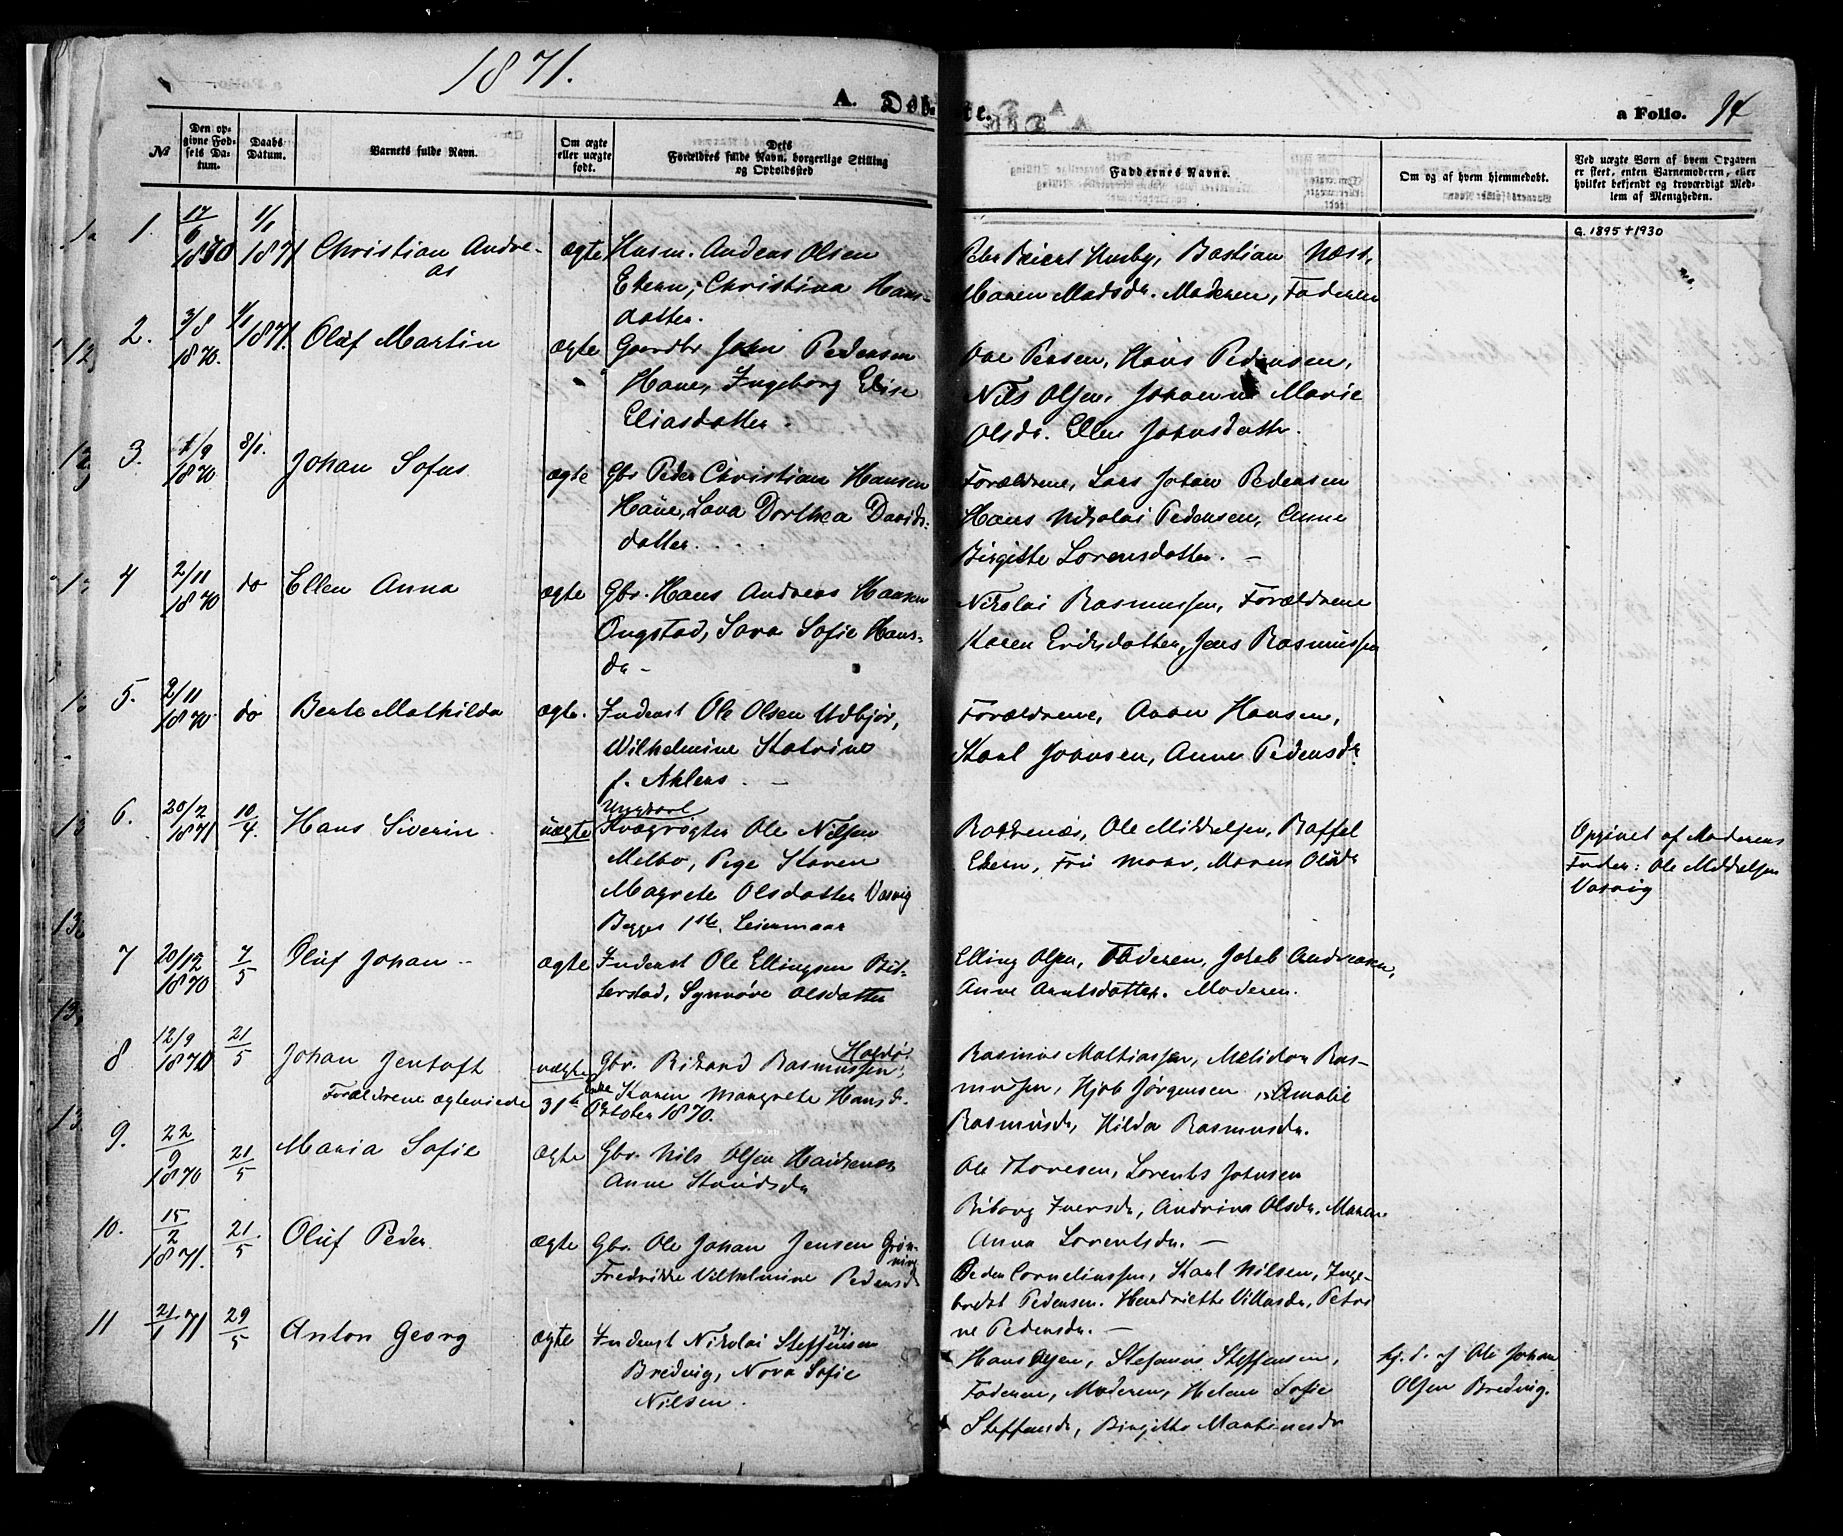 1871.
A. Døbte.
a Folio. 94
№
Den opgivne Fødsels Datum.
Daabs Datum.
Barnets fulde Navn.
Om ægte eller uægte født.
Dets Forældres fulde Navn, borgerlige Stilling og Opholdssted
Faddernes Navne.
Om og af hvem hjemmedøbt.
Ved uægte Børn af hvem Opgaven er skeet, enten Barnemoderen, eller hvilket bekjendt og troværdigt Medlem af Menigheden.
1. 17/6 1870 1/1 1871 Christian Andreas ægte Husm. Andeas Olsen
Ekern, Christina Hansdatter.
Bastian Næss,
Maren Madsdr. Moderen, Faderen
G. 1895 + 1930
2. 3/8 1870. 1/1 1871. Oluf Martin ægte Gaardbr John Pedersen
Hane, Ingeborg Elise
Eliasdatter.
Ole Peusen, Hans Pedersen,
Nils Olsen, Johanna Marie
Olsdr. Ellen Johnsdattr.
3. 1/9 1870 8/1. Johan Sofus ægte Gbr Peder Christian Hansen
Hane, Lava Dorthea Davidsdatter.
Forældrene, Lars Johan Pedersen
Hans Nikolai Pedersen, Anne
Birgitte Lorensdatter. —
4 2/11 1870 do Ellen Anna ægte Gbr. Hans Andreas Hansen
Ongstad, Sara Sofie Hansdr —
Nikolai Rasmussen, Forældrene
Karen Eriksdatter, Jens Rasmussen
5. 2/11 1870. do Berte Mathilda ægte. Inderst Ole Olsen Udbjør,
Wilhelmine Katrine
f. Ahlers. —
Forældrene, Aron Hansen,
Karl Johnsen, Anne Pedersdr
6. 20/2 1871 10/4. Hans Siverin. uægte Ungkarl
Kvægrøgter Ole Nilsen
Melbo, Pige Karen
Magrete Olsdatter Vasvig
Begges 1ste Leiermaal
Ole Mikkelsen, Raffel
Ekern, Maren Olsdr
Opgivet af Moderens
Fader: Ole Mikkelsen
Vasvig
7 20/12 1870 7/5 Oluf Johan — ægte Inderst Ole Ellingsen Bitterstad, Synnøve Olsdatter
Elling Olsen, Faderen, Jakob Andreasen,
Anne Arntsdatter. Moderen.
8 12/9 1870 21/5 Johan Jentoft uægte Gbr. Rikard Rasmussen, Haldø.
Forældrene ægteviede 31te Oktober 1870. Enke Karen Margrete Hansdr.
Rasmus Mathiassen, Melidon Rasmussen, Hjob Jørgensen, Amalie
Rasmusdr, Hilda Rasmusdr.
9. 22/9 1870 21/5 Maria Sofie ægte Gbr. Nils Olsen Haukenes
Anne Knudsdr
Ole Thoresen, Lorents Johnsen
Riborg Iversdr, Andrina Olsdr. Maren
Anna Lorentsdr. —
10. 15/2 1871. 21/5 Oluf Peder ægte Gbr. Ole Johan Jensen Grønning
Fredrikke Vilhelmine Pedersdr
Peder Corneliussen, Karl Nilsen, Ingebrekt Pedersen. Hendriette Villasdr, Petrine Pedersdr. —
11 21/1 71 29/5 Anton Georg ægte Inderst Nikolai Steffensen
Bredvig, Nora Sofie
Nilsen.
Hans Olsen, Stefanus Steffensen,
Faderen, Moderen, Helene Sofie
Steffensdr, Birgitte Martinesdr
hj. d. af Ole Johan
Olsen Bredvig.